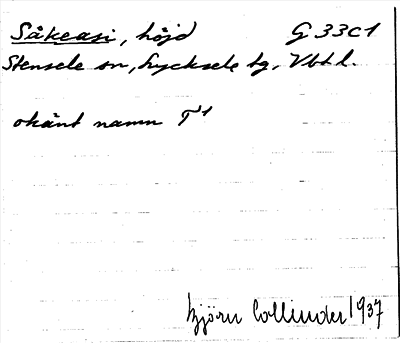 Såkeasi, höjd G 33c1
Stensele sn, Lycksele tg, Vbtl.
okänt namn T¹
Björn Collinder 1937